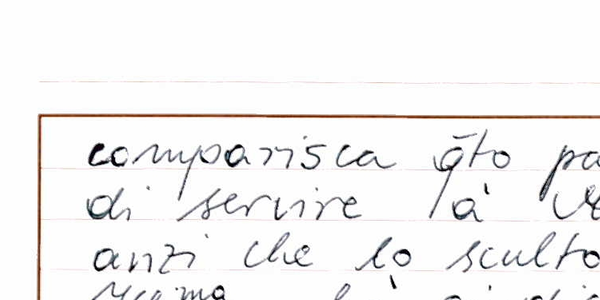 comparisca q̄to pa
di servire à
anzi che lo sculto